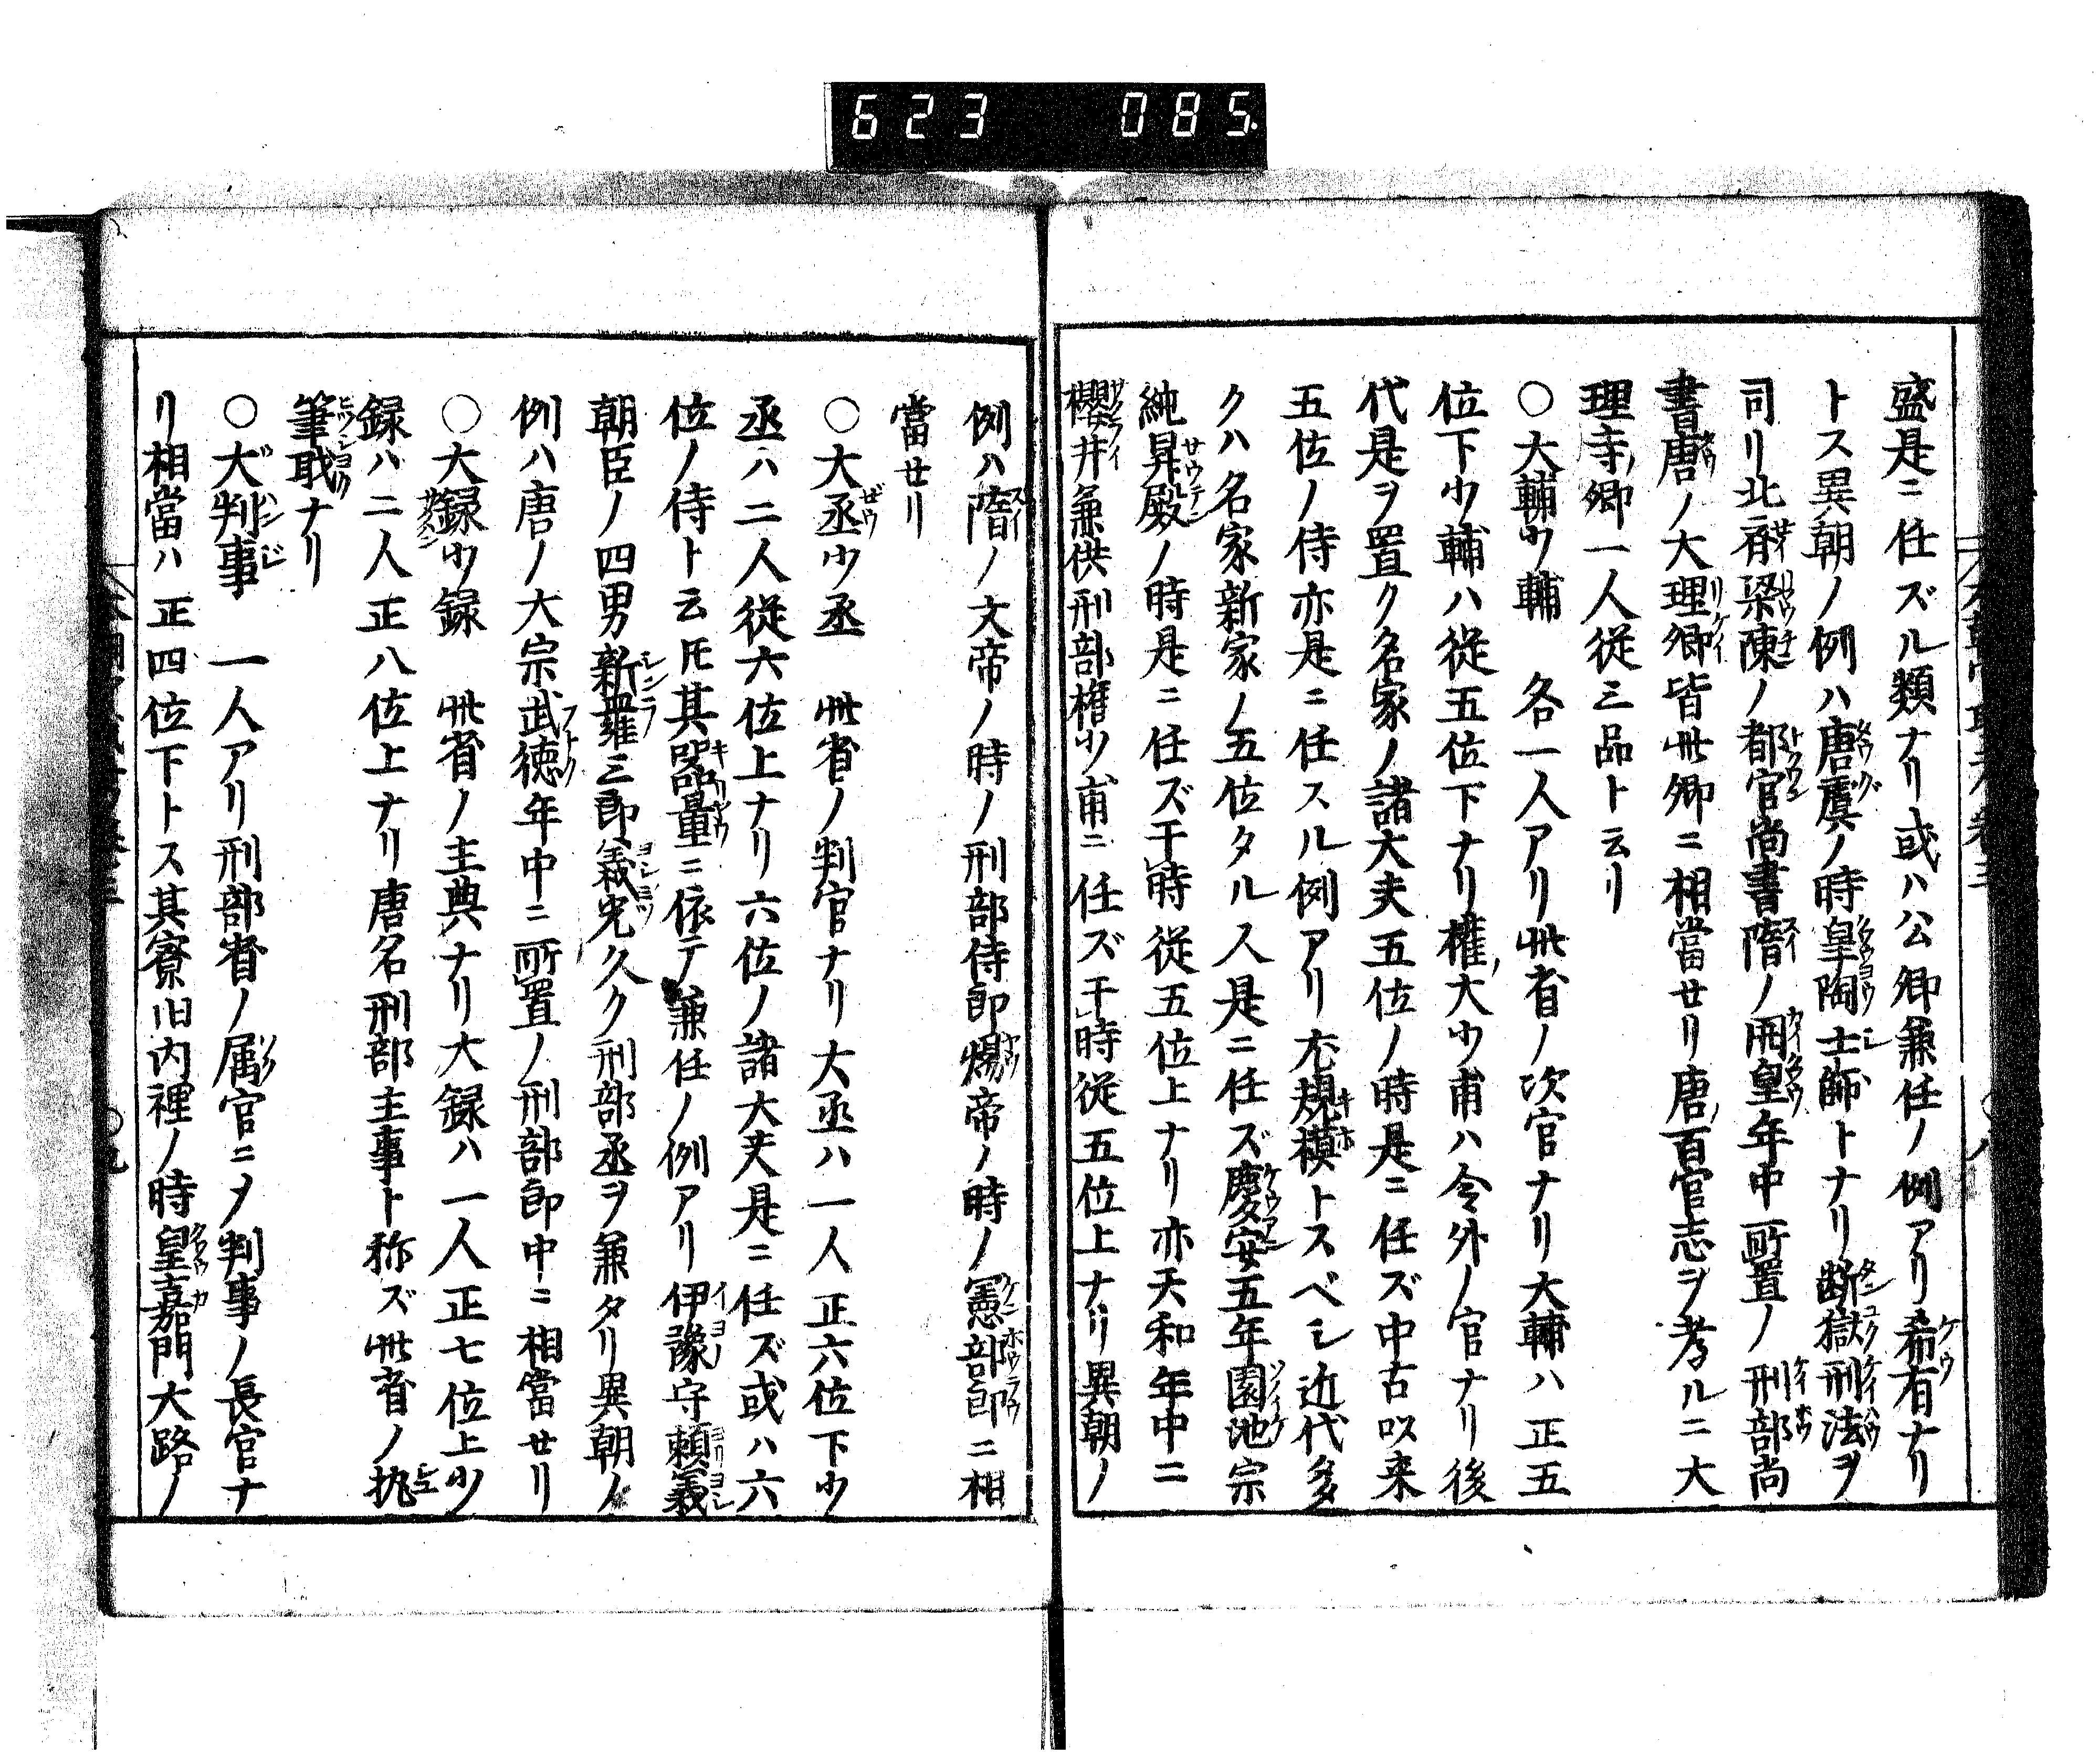 623 085
盛是ニ任ズル類ナリ或ハ公卿兼任ノ例アリ希有ナリ
トス異朝ノ例ハ唐虞ノ時皇陶士師トナリ断獄刑法ヲ
司リ北斉梁陳ノ都官尚書隋ノ開皇年中所置ノ刑部尚
書唐ノ大理卿皆此卿ニ相當せリ唐百官志ヲ考ルニ大
理寺卿一人従三品ト云リ
○大輔少輔 各一人アリ此省ノ次官ナリ大輔ハ正五
位下少輔ハ従五位下ナリ権大少甫ハ令外ノ官ナリ後
代是ヲ置ク名家ノ諸大夫五位ノ時是ニ任ズ中古以来
五位ノ侍亦是ニ任スル例アリ尤規模トスベシ近代多
クハ名家新家ノ五位タル人是ニ任ズ慶安五年園池宗
純昇殿ノ時是ニ任ズ于時従五位上ナリ亦天和年中ニ
櫻井兼供刑部権少甫ニ任ズ于時従五位上ナリ異朝ノ
例ハ隋ノ文帝ノ時ノ刑部侍郎煬帝ノ時ノ憲部郎ニ相
當せリ
○大丞少丞 此省ノ判官ナリ大丞ハ一人正六位下少
丞ハ二人従六位上ナリ六位ノ諸大夫是ニ任ズ或ハ六
位ノ侍ト云𪜈其器量ニ依テ兼任ノ例アリ伊豫守頼義
朝臣ノ四男新羅三郎義光久ク刑部丞ヲ兼タリ異朝ノ
例ハ唐ノ大宗武徳年中ニ所置ノ刑部郎中ニ相當せリ
○大録少録 此省ノ主典ナリ大録ハ一人正七位上少
録ハ二人正八位上ナリ唐名刑部主事ト称ズ此省ノ執
筆職ナリ
○大判事 一人アリ刑部省ノ属官ニヲ判事ノ長官ナ
リ相當ハ正四位下トス其寮旧内裡ノ時皇嘉門大路ノ